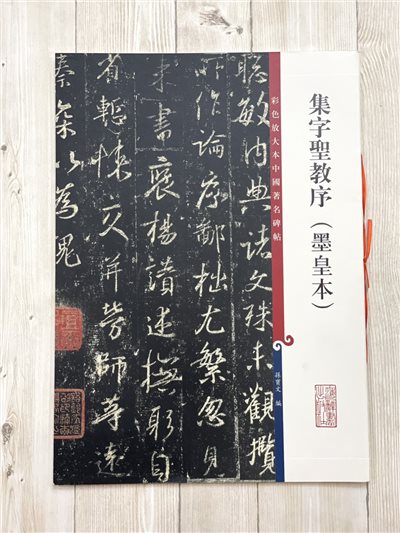 集字聖教序（墨皇本）
彩色放大本中國著名碑帖
孫寶文 編
聰敏內典諸文殊未觀攬
所作論序鄙拙尤繁忽見
來書褒揚讚述撫躬自
省慙悚交并勞師等遠
臻深以為愧